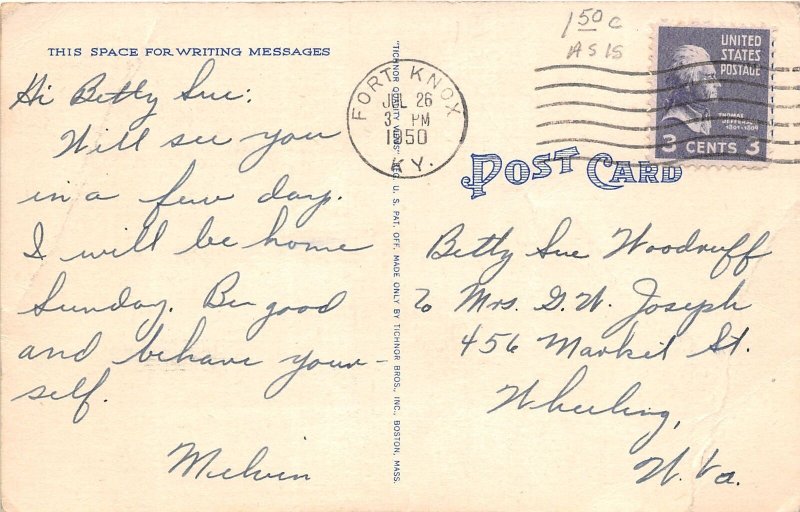 THIS SPACE FOR WRITING MESSAGES
Hi Betty Sue:
Will see you
in a few days.
I will be home
Sunday. Be good
and behave your-
self.
Melvin
"TICHNOR QUALITY VIEWS" REG. U. S. PAT. OFF. MADE ONLY BY TICHNOR BROS., INC., BOSTON, MASS.
FORT KNOX
JUL 26
3 PM
1950
KY.
1 50 c
AS IS
UNITED
STATES
POSTAGE
THOMAS
JEFFERSON
1801-1809
3 CENTS 3
POST CARD
Betty Sue Woodruff
% Mrs. G. W. Joseph
456 Market St.
Wheeling,
W. Va.